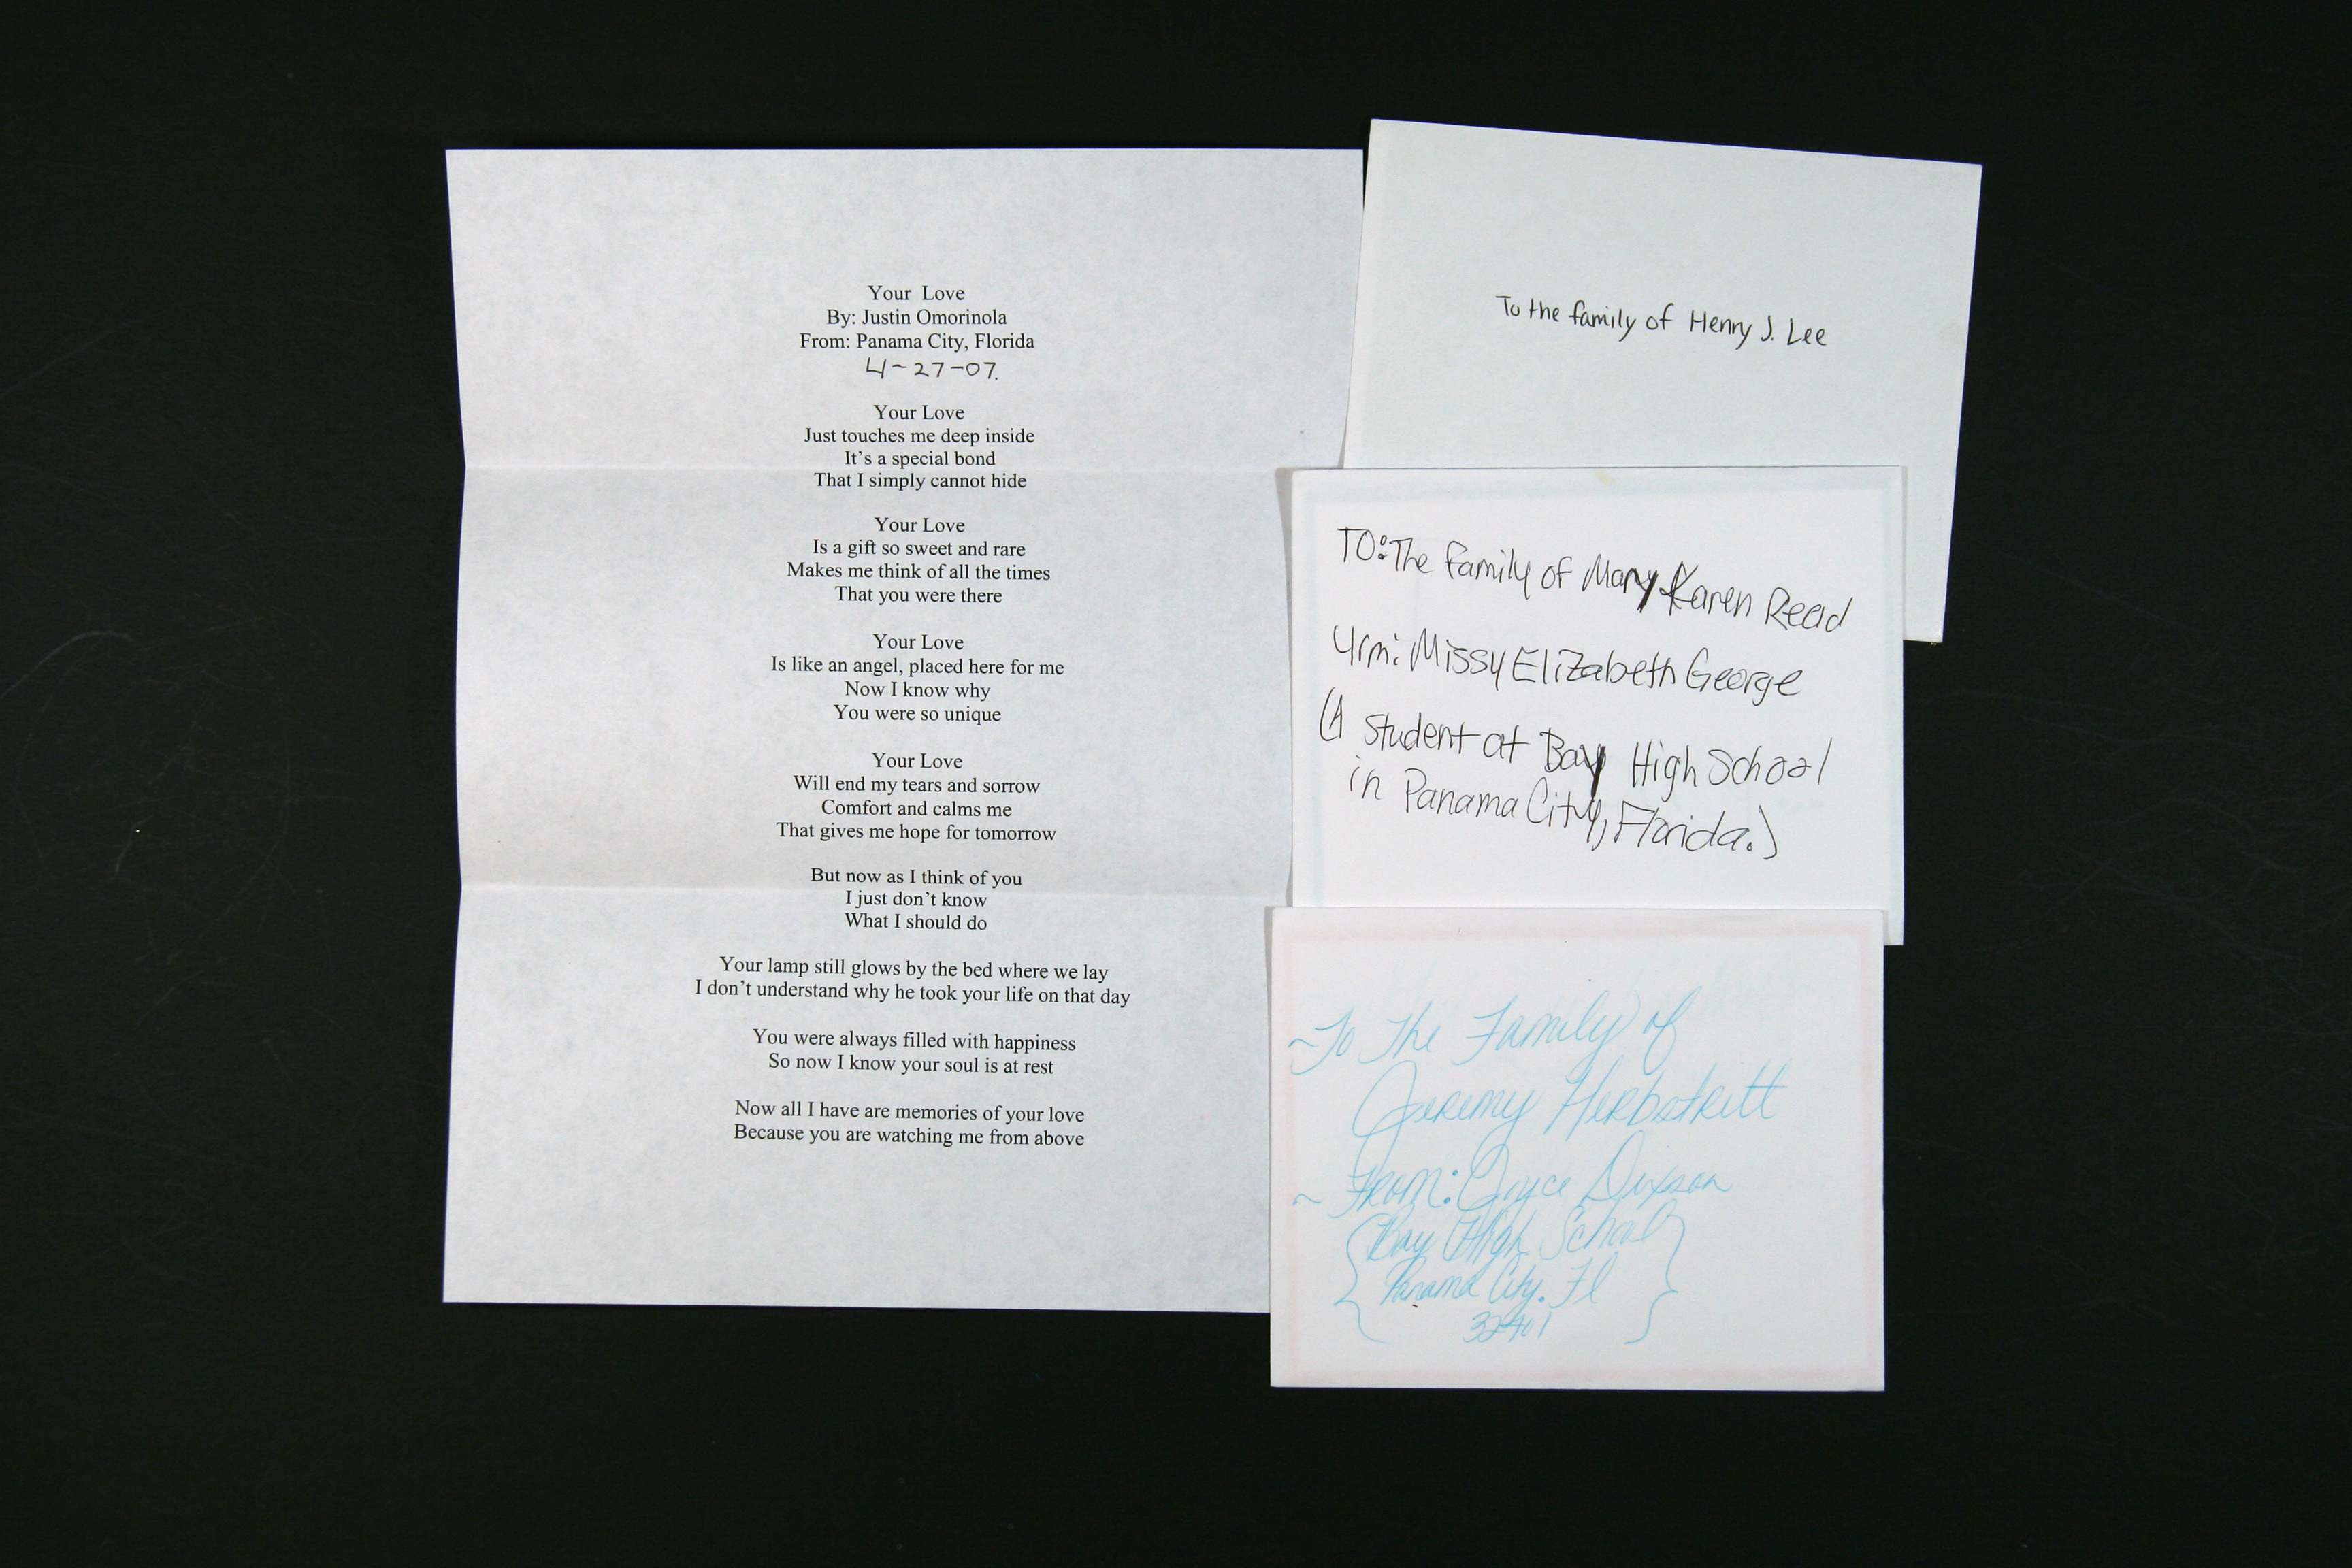 Your Love
By: Justin Omorinola
From: Panama City, Florida
4-27-07.
Your Love
Just touches me deep inside
It's a special bond
That I simply cannot hide
Your Love
Is a gift so sweet and rare
Makes me think of all the times
That you were there
Your Love
Is like an angel, placed here for me
Now I know why
You were so unique
Your Love
Will end my tears and sorrow
Comfort and calms me
That gives me hope for tomorrow
But now as I think of you
I just don't know
What I should do
Your lamp still glows by the bed where we lay
I don't understand why he took your life on that day
You were always filled with happiness
So now I know your soul is at rest
Now all I have are memories of your love
Because you are watching me from above
To the family of Henry J. Lee
TO: The family of Mary Karen Read
4rm: Missy Elizabeth George
(A student at Bay High School
in Panama City, Florida.)
~To The Family of
Jeremy Herbstritt
~ From: Joyce Dixson
{Bay High School
Panama City. Fl
32401}